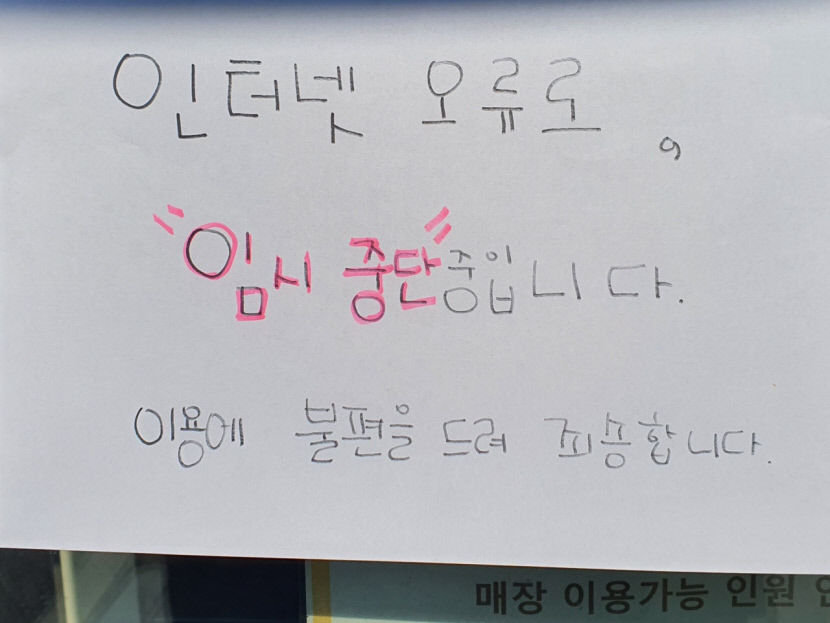 인터넷 오류로,
"임시 중단"중입니다.
이용에 불편을 드려 죄송합니다.
매장 이용가능 인원 안